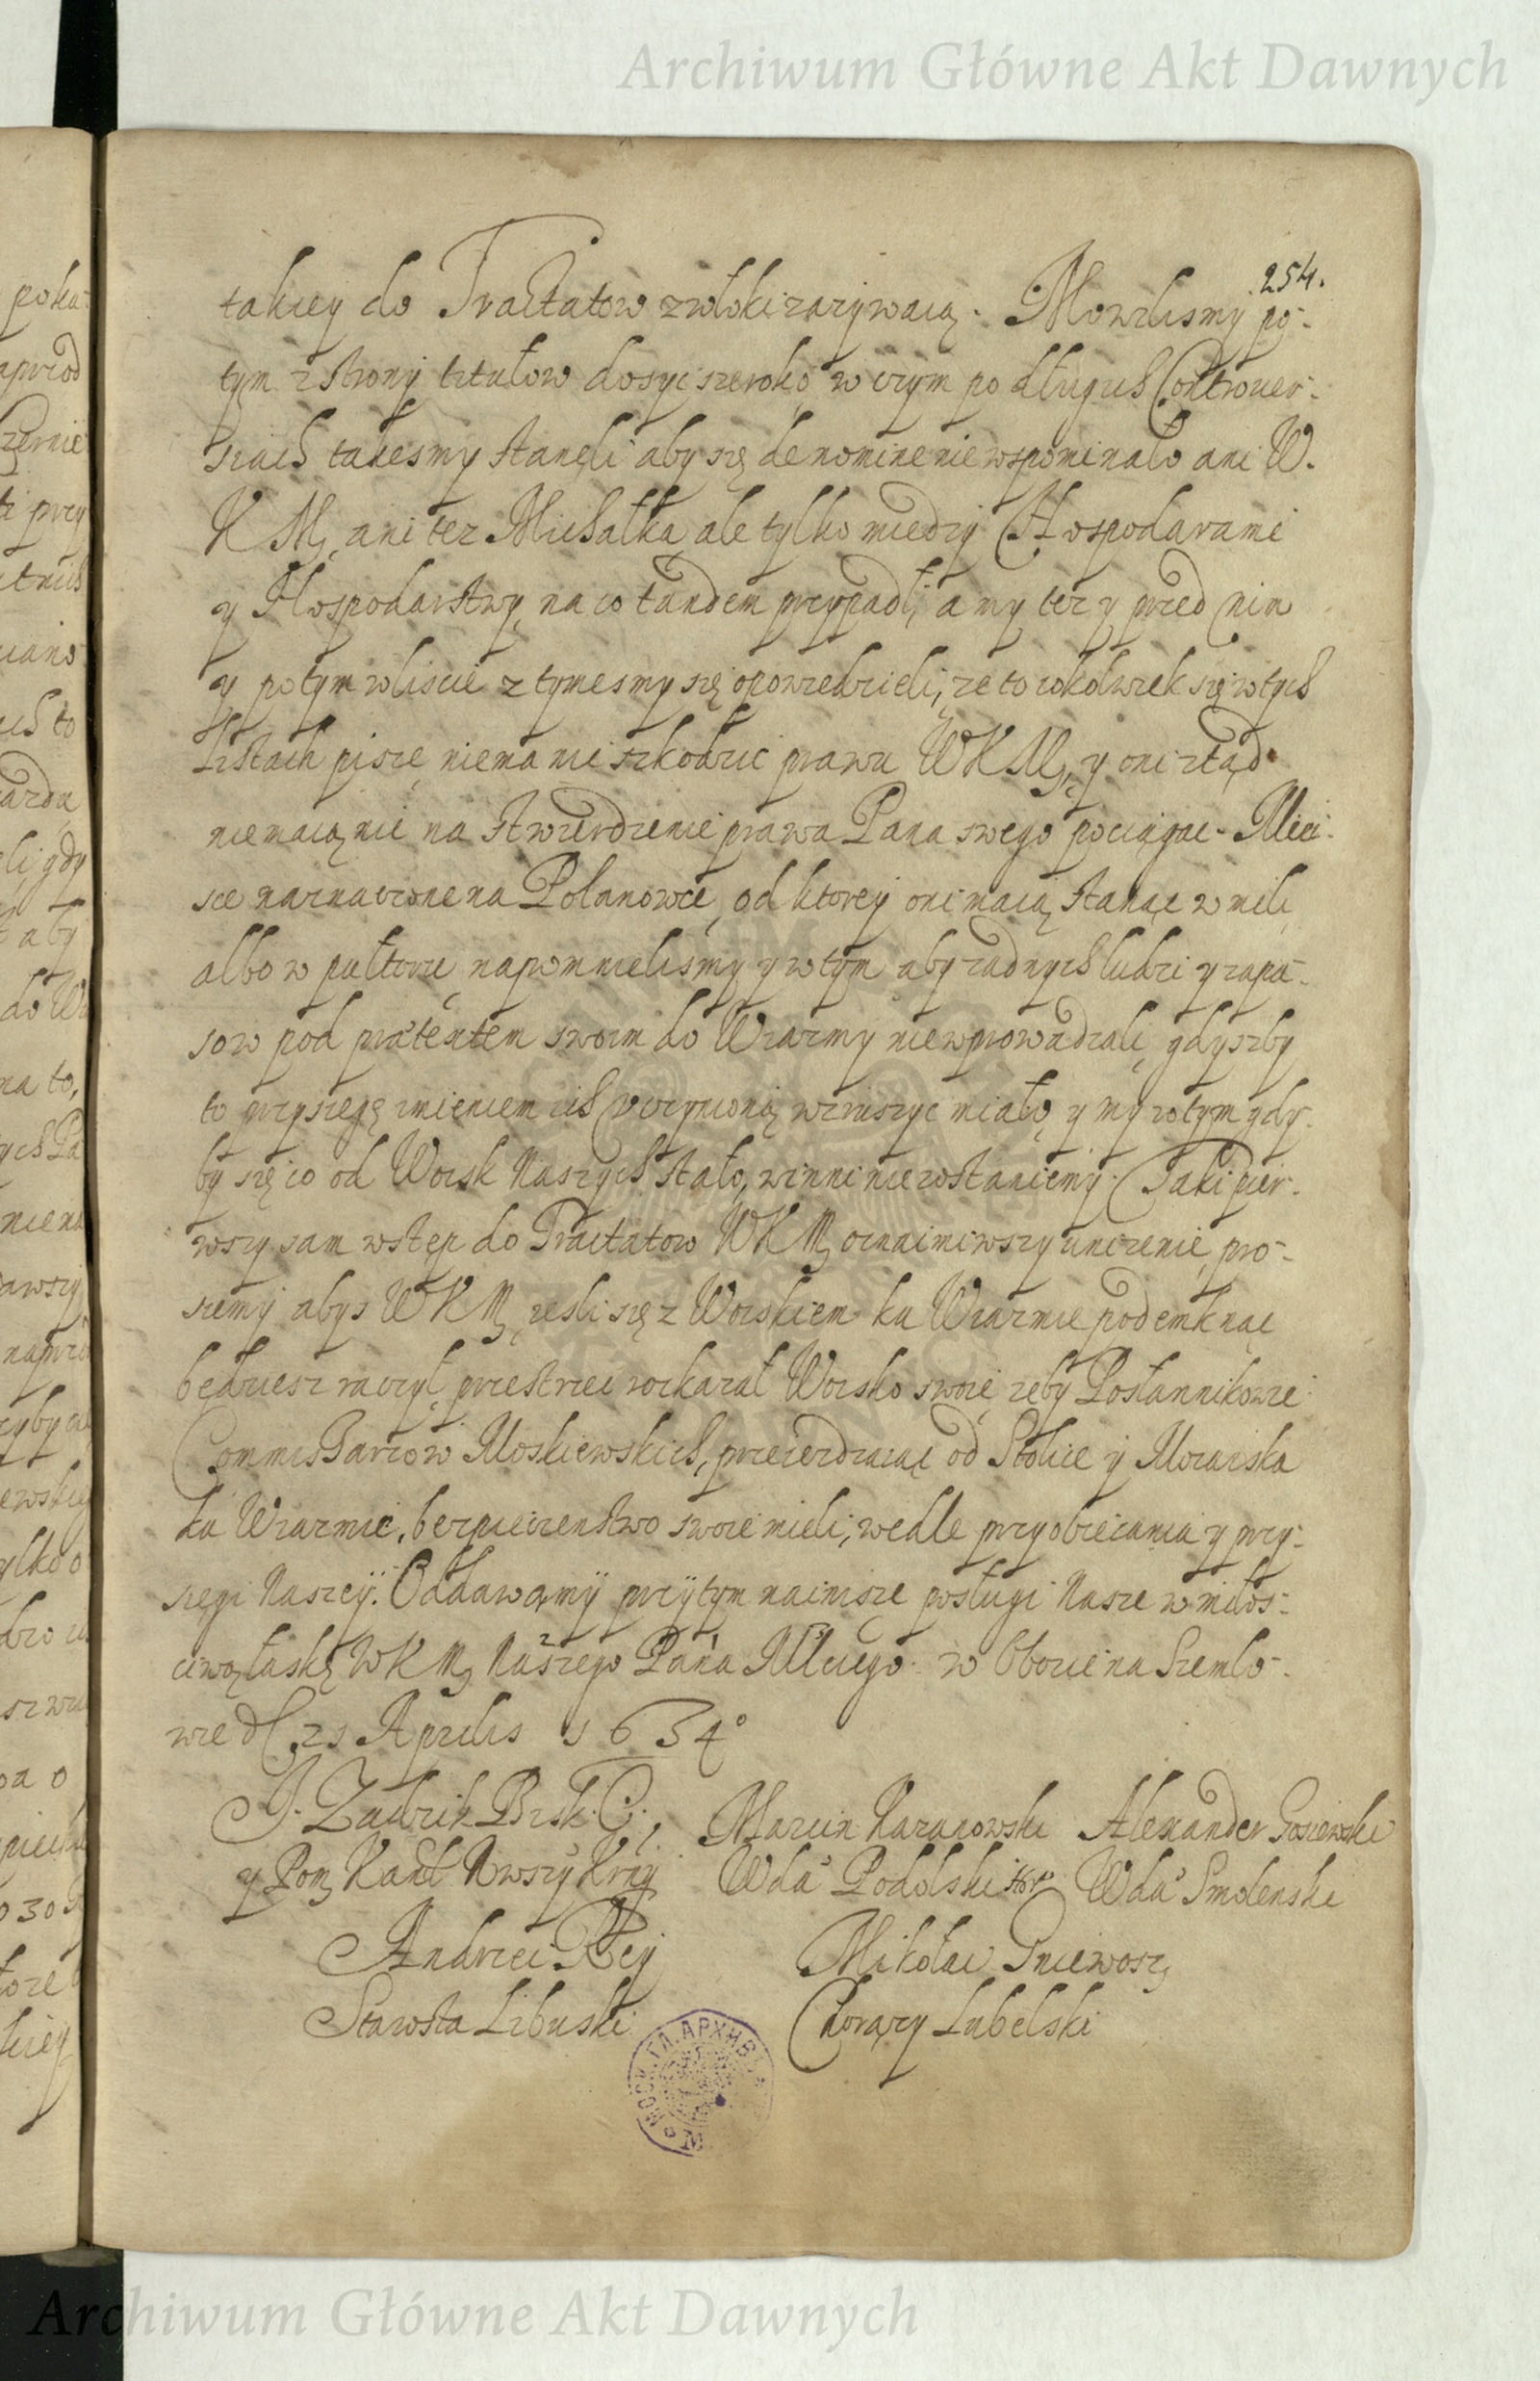 Archiwum Główne Akt Dawnych
254.
takiey do Tractatow zwłoki zazywaią. Mowilismy po-
tym z strony titułow dosyc szeroko, w czym po długich Controuer-
siach takesmy stanęli aby się de nomine nie wspominało ani W.
K M, ani tez Michałka, ale tylko miedzy Hospodarami
y Hospodarstwy, na co tandem przypadli, a my tez y przed nim
y potym w liscie z tymesmy się opowiedzieli, ze to cokolwiek się w tych
listach pisze, niema nic szkodzic prawu WKM, y oni ztąd
niemaią nic na stwierdzenie prawa Pana swego pociągac. Miei-
sce naznaczone na Polanowce, od ktorey oni maią stanąc w mili
albo w pułtorze, napomnielismy y w tym aby zadnych ludzi y zapa-
sow pod prætextem swoim do Wiazmy niewprowadzali, gdyszby
to przysięgę imieniem ich vczynioną wzruszyc miało, y my w tym gdy-
by się co od Woisk Naszych stało, winni nie zostaniemy. Taki pier-
wszy sam wstęp do Tractatow WKM oznaimiwszy vnizenie, pro-
siemy abys WKM, iesli się z Woiskiem ku Wiazmie podemknąc
będziesz raczył, przestrzec roskazał Woisko swoie, zeby Posłannikowie
Commissarzow Moskiewskich, przeiezdzaiąc od Stolice y Mozaiska
ku Wiazmie, bezpieczenstwo swoie mieli, wedle przyobiecania y przy-
sięgi Naszey. Oddawamy przytym nainisze posługi Nasze w miłos-
ciwą łaskę WKM, Naszego Pana Młciwego. w Obozie na Siemlo-
wie d 21 Aprilis 1634°
J. Zadzik Bisk. C. Marcin Kazanowski Alexander Gosiewski
y Pom, Kancl Nwszy Krny Wda Podolski Wda Smolenski
Andrzei Rey Mikołai Gniewosz
Starosta Libuski Chorązy Lubelski
МОСК. ГЛ. АРХИВЪ
Archiwum Główne Akt Dawnych